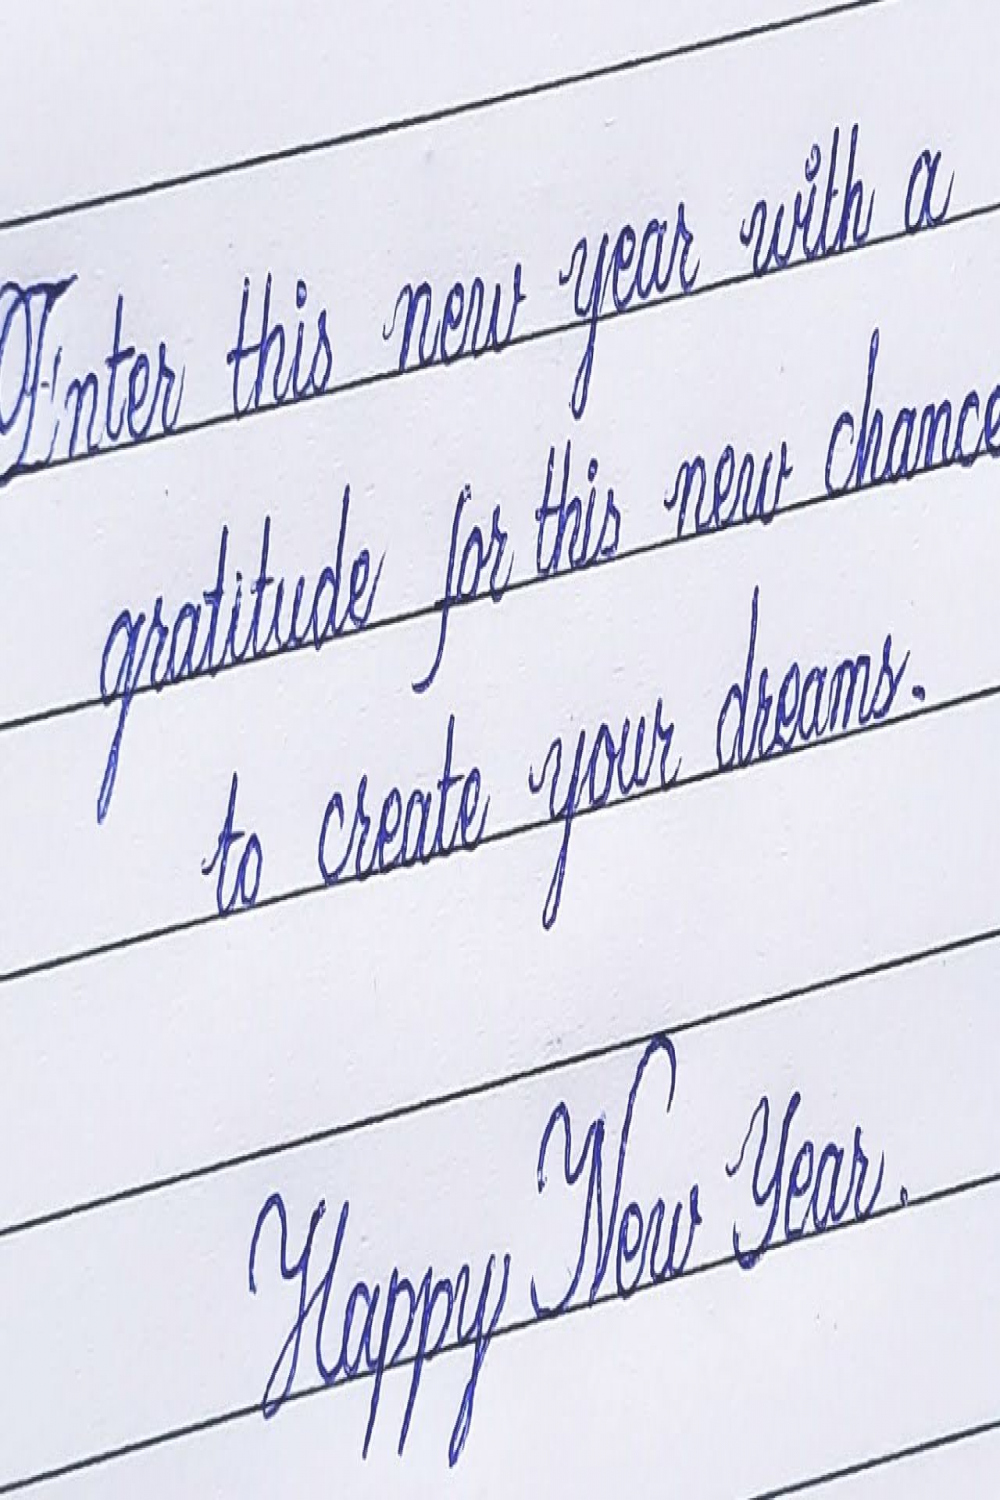 Enter this new year with a
gratitude for this new chance
to create your dreams.
Happy New Year.